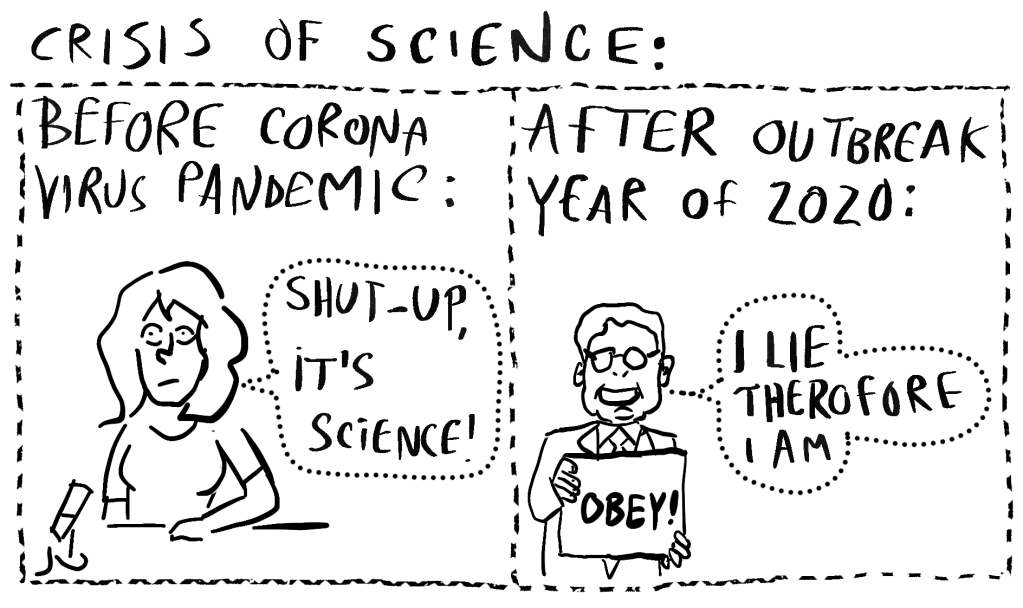 CRISIS OF SCIENCE:
BEFORE CORONA
VIRUS PANDEMIC:
SHUT-UP,
IT'S
SCIENCE!
AFTER OUTBREAK
YEAR OF 2020:
I LIE
THEROFORE
I AM
OBEY!